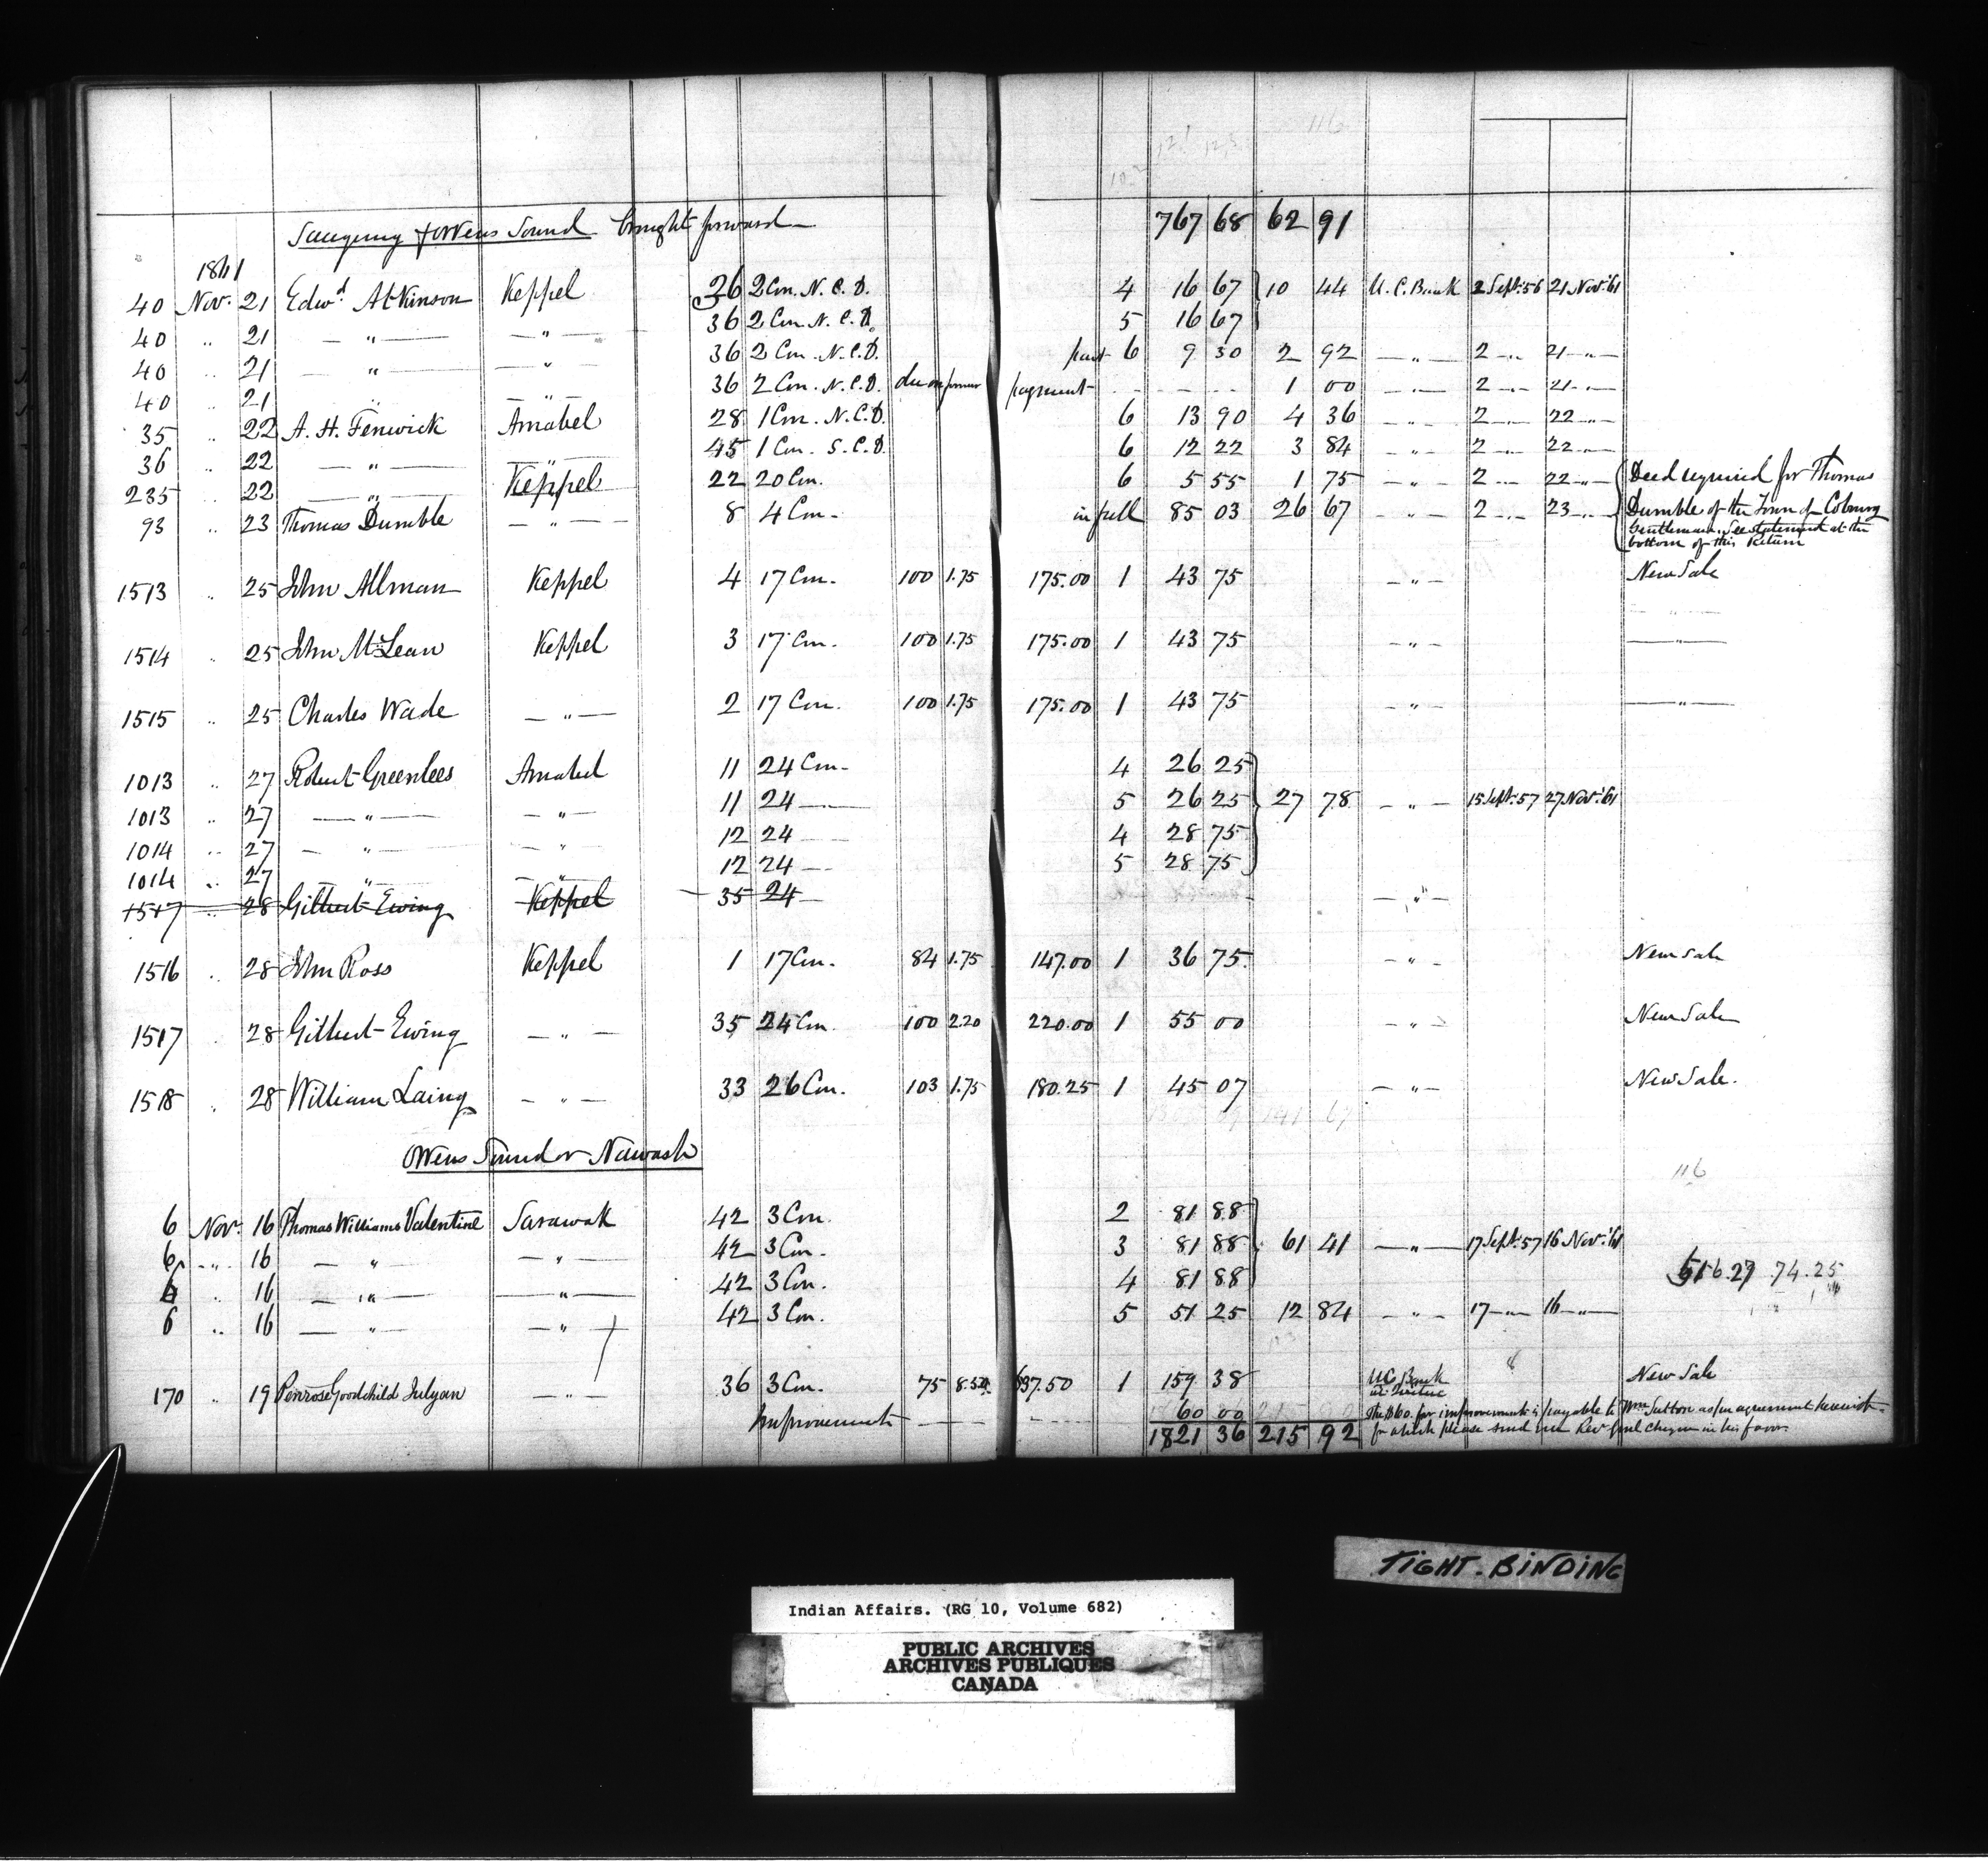 Saugeeng & Owens Sound brought forward 767 68 62 91
1861
40 Nov. 21 Edwd. Atkinson Keppel 36 2 Con. N. C. D. 4 16 67 10 44 U. C. Bank 2 Sept. 56 21 Nov. '61
40 " 21 — " — — " — 36 2 Con. N. C. D. 5 16 67
40 " 21 — " — — " — 36 2 Con. N. C. D. part 6 9 30 2 92 — " — 2 — " — 21 — " —
40 " 21 " — " — 36 2 Con. N. C. D. due on former payment - - - - 1 00 — " — 2 — " — 21 — " —
35 " 22 A. H. Fenwick Amabel 28 1 Con. N. C. D. 6 13 90 4 36 — " — 2 — " — 22 — " —
36 " 22 — " — — " — 45 1 Con. S. C. D. 6 12 22 3 84 — " — 2 — " — 22 — " —
235 " 22 — " — Keppel 22 20 Con. 6 5 55 1 75 — " — 2 — " — 22 — " — Deed required for Thomas
93 " 23 Thomas Dumble — " — 8 4 Con. in full 85 03 26 67 — " — 2 — " — 23 — " — Dumble of the Town of Coburg
Gentleman. See statement at the
bottom of this Return
1513 " 25 John Allman Keppel 4 17 Con. 100 1.75 175.00 1 43 75 — " — New Sale
— " —
1514 " 25 John McLean Keppel 3 17 Con. 100 1.75 175.00 1 43 75 — " — — " —
1515 " 25 Charles Wade — " — 2 17 Con. 100 1.75 175.00 1 43 75 — " — — " —
1013 " 27 Robert Greenlees Amabel 11 24 Con. 4 26 25
1013 " 27 — " — — " — 11 24 — 5 26 25 27 78 — " — 15 Sept. 57 27 Nov. '61
1014 " 27 — " — — " — 12 24 — 4 28 75
1014 " 27 — " — — " — 12 24 — 5 28 75
1517 " 28 Gilbert Ewing Keppel 35 24 — — " —
1516 " 28 John Ross Keppel 1 17 Con. 84 1.75 147.00 1 36 75 — " — New Sale
1517 " 28 Gilbert Ewing — " — 35 24 Con. 100 2.20 220.00 1 55 00 — " — New Sale
1518 " 28 William Laing — " — 33 26 Con. 103 1.75 180.25 1 45 07 — " — New Sale.
Owens Sound or Nawash
116
6 Nov. 16 Thomas Williams Valentine Sarawak 42 3 Con. 2 81 88
6 " 16 — " — — " — 42 3 Con. 3 81 88 61 41 — " — 17 Sept. 57 16 Nov. '61
6 " 16 — " — — " — 42 3 Con. 4 81 88
516.27 74.25
6 " 16 — " — — " — 42 3 Con. 5 51 25 12 84 — " — 17 — " — 16 — " —
170 " 19 Penrose Goodchild Julyan — " — 36 3 Con. 75 8.50 637.50 1 159 38 U C Bank New Sale
Improvements — - - 60 00 The $60. for improvements is payable to Wm. Sutton as per agreement herewith
1821 36 215 92 for which please send me Recr. Genl. cheque in his favor.
TIGHT. BINDING
Indian Affairs. (RG 10, Volume 682)
PUBLIC ARCHIVES
ARCHIVES PUBLIQUES
CANADA